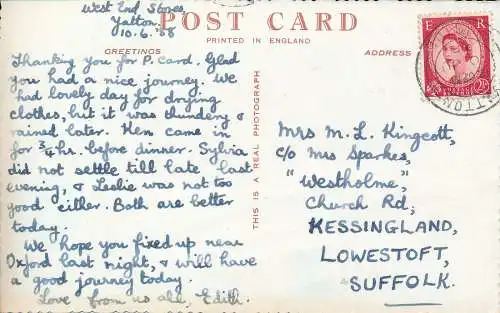 West End Stores,
Yatton.
10.6.'58
POST CARD
PRINTED IN ENGLAND
GREETINGS
ADDRESS
Thanking you for P. Card. Glad
you had a nice journey. We
had lovely day for drying
clothes, but it was thundery &
rained later. Ken came in
for 3/4 hr. before dinner. Sylvia
did not settle till late last
evening, & Leslie was not too
good either. Both are better
today.
We hope you fixed up near
Oxford last night, & will have
a good journey today.
Love from us all, Edith.
THIS IS A REAL PHOTOGRAPH
E R
Mrs M. L. Kingcott,
c/o Mrs Sparkes,
"Westholme",
Church Rd,
KESSINGLAND,
LOWESTOFT,
SUFFOLK.